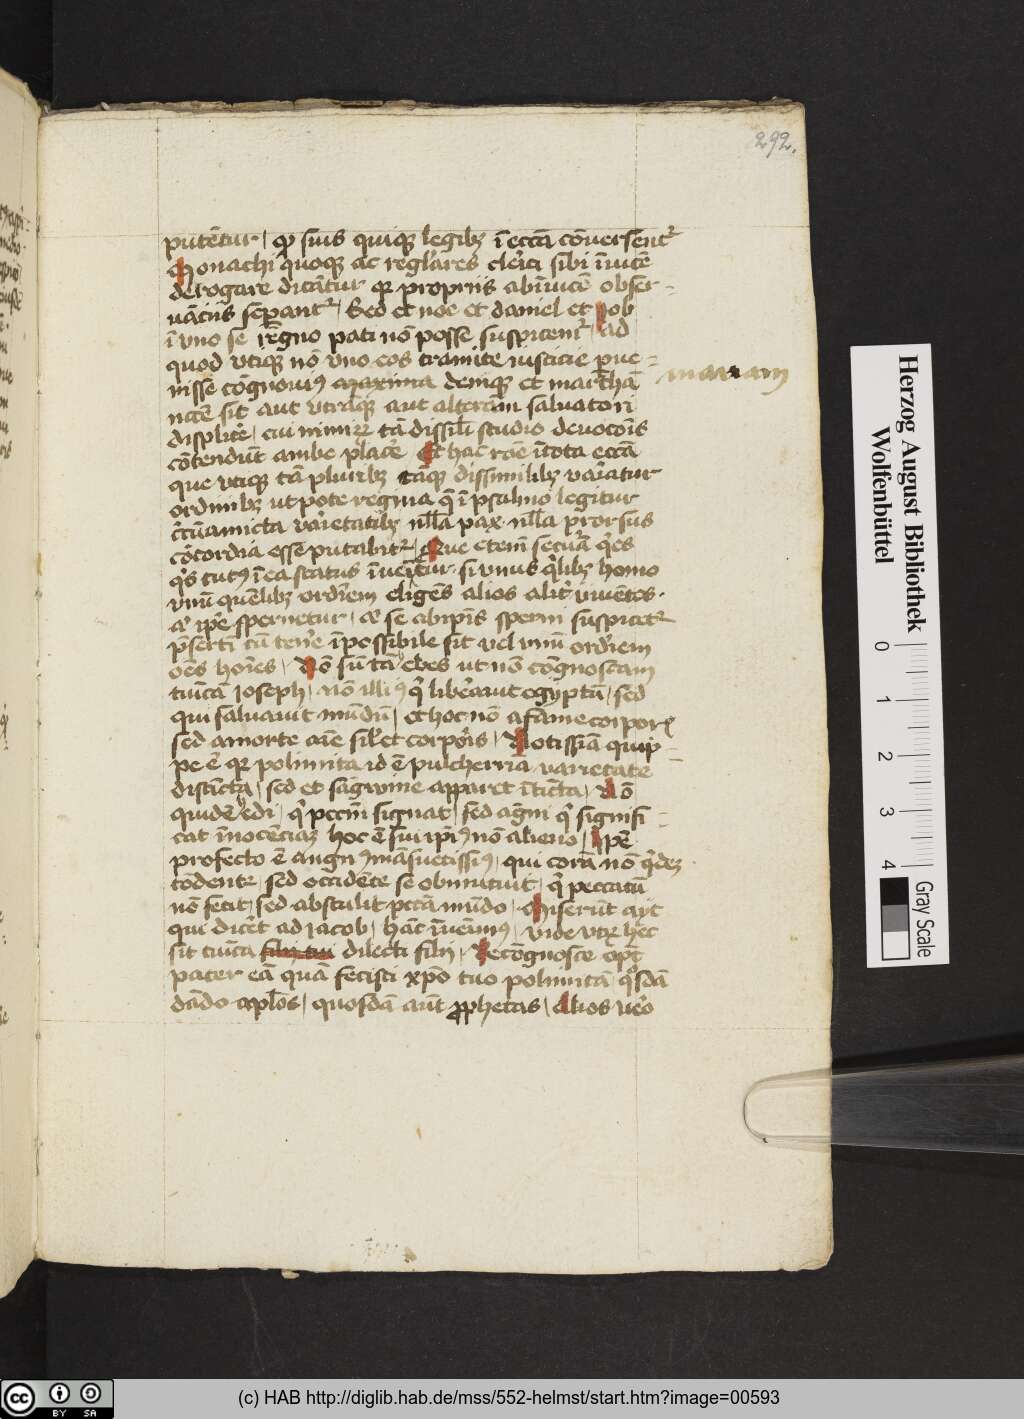 292.
putētur / qꝫ suis quiqꝫ legibꝫ ī eccā cōuersent᷑
Monachi quoqꝫ ac reglares cleici sibi īuicē
derogare dicātur qꝫ propriis abīuicē obser-
uāciis sepant᷑ / Sed et noe et daniel et Job
ī vno se regno pati nō posse suspicent᷑ / ad
quod vtiqꝫ nō vno eos tramite iusticie pue-
nisse cōgnouiꝰ Maxima deniqꝫ et marthā
mariam
sit aut vtrāqꝫ aut alteram saluatori
displicē / cui nimirū tā dissili studio deuocōis
cōtendūt ambe placē Et hac rōe ī tota eccā
que vtiqꝫ tā pluribꝫ tāqꝫ dissimilibꝫ variatur
ordinibꝫ ut pote regina q̄ ī psalmo legitur
c̄cūamicta varietatibꝫ nłła pax nłła prorsus
cōcordia esse putabit᷑ / Que etem̄ secura q̇es
q̇s tutꝰ ī ea status īueitur si vnus q̇libꝫ homo
vnū quēlibꝫ ordīem eligēs alios alit viuētes
a ipē spernetur / a se abip̄is sperni suspicet᷑
p̄serti cū tene īpossibile sit vel vnū ordīem
oēs hoīes / Nō sū tā ebes ut nō cōgnoscam
tunicā ioseph / nō illiꝰ q̇ liberauit egyptū / sed
qui saluauit mūdū / et hoc nō a fame corporꝭ
sed a morte aīe sil et corporis / Notissiā quip-
pe ē qꝫ polimita id ē pulcherria varietate
distīcta / sed et sagwine apparet ītīcta / Nō
quidē edi / q̇ pccm̄ signat / sed agni q̇ signifi-
cat īnocēciaꝫ hoc ē sui ip̄iꝰ nō alieno / Ipē
profecto ē agnꝰ māsuetissiꝰ / qui corā nō q̇deꝫ
tōdente / sed occidēte se obmutuit / q̇ peccatū
nō fecit / sed abstulit pctā mūdo / Miserūt ayt
qui dicēt ad iacob / hāc īuenimꝰ / vide vtꝝ hec
sit tunica filij tui dilecti filij / Recōgnosce et
pater eā quā fecisti xp̄o tuo polimitā q̇sdā
dādo ap̄los / quosdā aūt ꝓphetas / Alios uēo
Herzog August Bibliothek
Wolfenbüttel
0 1 2 3 4
Gray Scale
cc BY SA
(c) HAB http://diglib.hab.de/mss/552-helmst/start.htm?image=00593